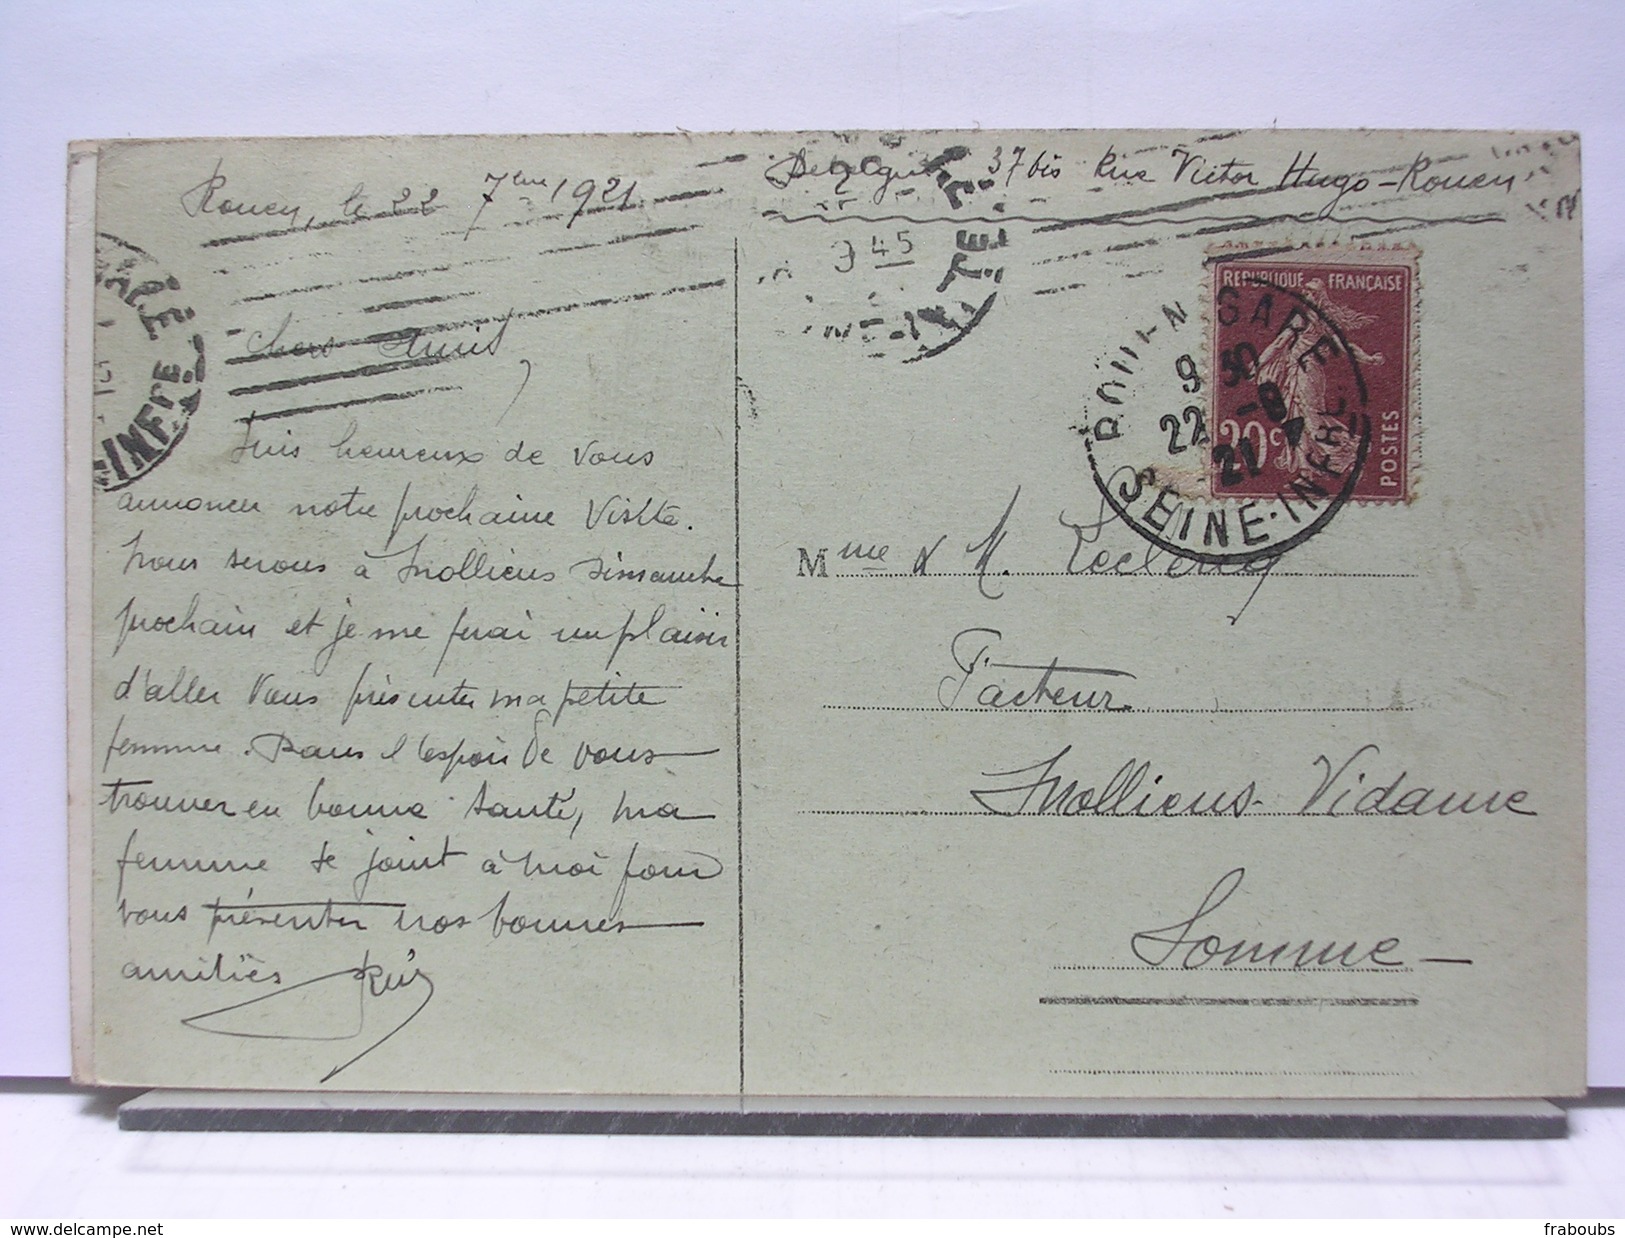 Rouen, le 22 7eme 1921
Chers Amis,
Suis heureux de vous
annoncer notre prochaine Visite.
Nous serons à Molliens Dimanche
prochain et je me ferai un plaisir
d'aller Vous présenter ma petite
femme. Dans l'espoir de vous
trouver en bonne santé, ma
femme se joint à moi pour
vous présenter nos bonnes
amitiés
37 bis Rue Victor Hugo - Rouen
9 45
REPUBLIQUE FRANÇAISE
20c
POSTES
ROUEN GARE
9 30
22 -9
21
SEINE-INFRE
Mme & M. Leclercq
Facteur
Molliens-Vidame
Somme -
http://www.delcampe.net
fraboubs